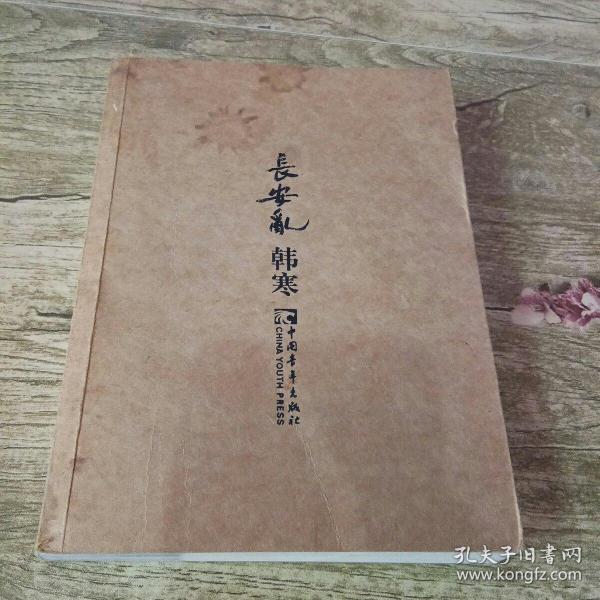 長安亂
韩寒
中国青年出版社
CHINA YOUTH PRESS
孔夫子旧書网
www.kongfz.com